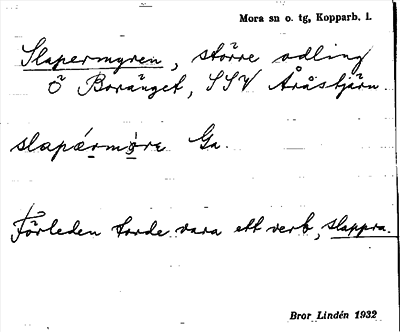 Mora sn o. tg, Kopparb. l.
Slapermyren, större odling
Ö Boränget, SSV Åråstjärn.
slapærmøre Ga.
Förleden torde vara ett verb, slappra.
Bror Lindén 1932